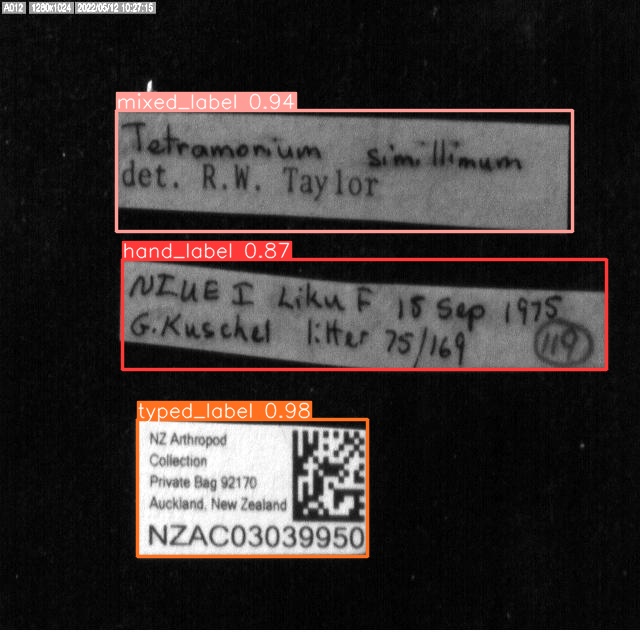 A012 1280x1024 2022/05/12 10:27:15
mixed_label 0.94
Tetramonium simillimum
det. R.W. Taylor
hand_label 0.87
NIUE I Liku F 18 Sep 1975
G.Kuschel litter 75/169 119
typed_label 0.98
NZ Arthropod
Collection
Private Bag 92170
Auckland, New Zealand
NZAC03039950